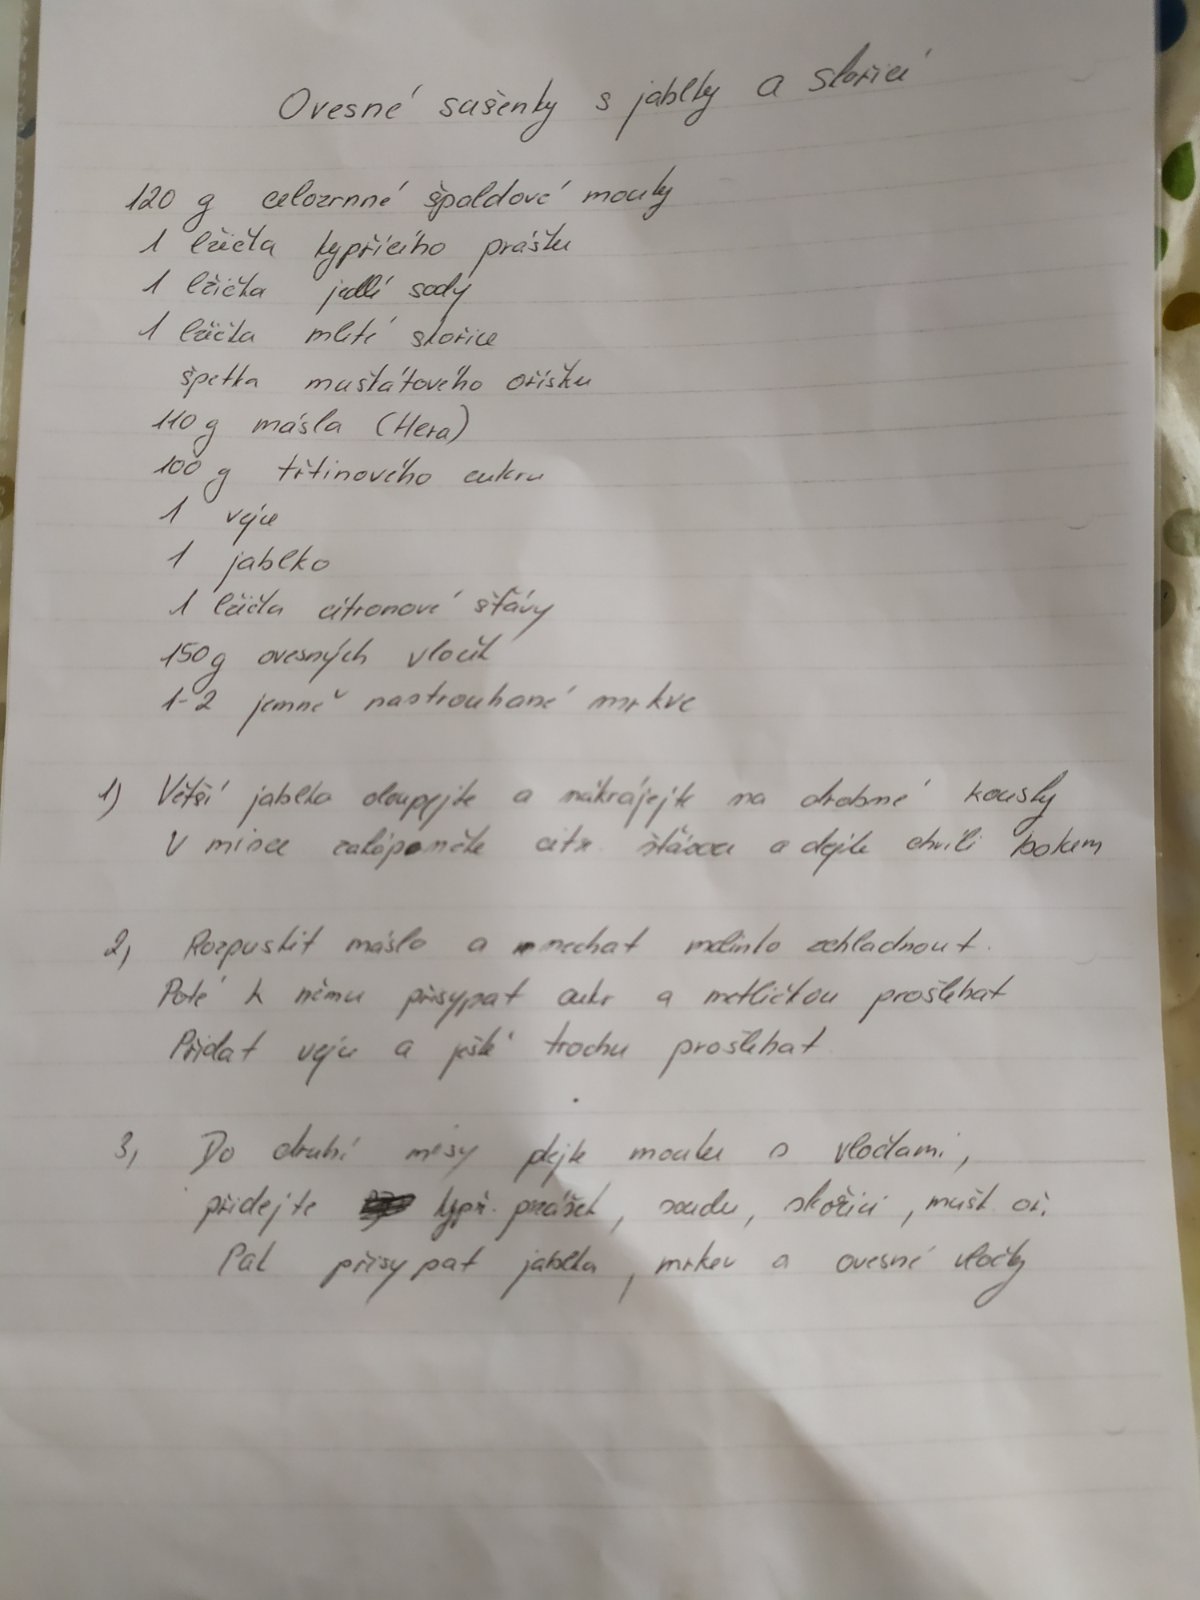 Ovesné sušenky s jablky a skořicí
120 g celozrnné špaldové mouky
1 lžička kypřícího prášku
1 lžička jedlé sody
1 lžička mleté skořice
špetka muškátového oříšku
110 g másla (Hera)
100 g třtinového cukru
1 vejce
1 jablko
1 lžička citronové šťávy
150g ovesných vloček
1-2 jemně nastrouhané mrkve
1) Větší jablka oloupejte a nakrájejte na drobné kousky
V misce zakápněte citr. šťávou a dejte chvíli bokem
2, Rozpustit máslo a nechat malinko zchladnout.
Poté k němu přisypat cukr a metličkou prošlehat
Přidat vejce a ještě trochu prošlehat
3, Do druhé mísy dejte mouku s vločkami,
přidejte kypř. prášek, sodu, skořici, mušk. oř.
Pak přisypat jablka, mrkev a ovesné vločky